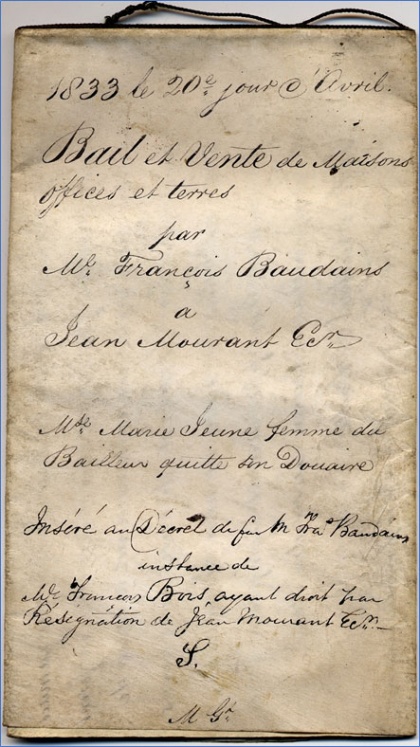 1833 le 20e jour d'Avril.
Bail et Vente de Maisons
offices et terres
par
Mr. François Baudains
a
Jean Mourant Ecr.
Mde Marie Jeune femme du
Bailleur quitte son Douaire
Inséré au Décret de feu Mr Frs Baudains
instance de
Mr. Francois Bois ayant droit par
Résignation de Jean Mourant Ecr.
S.
M Gt.